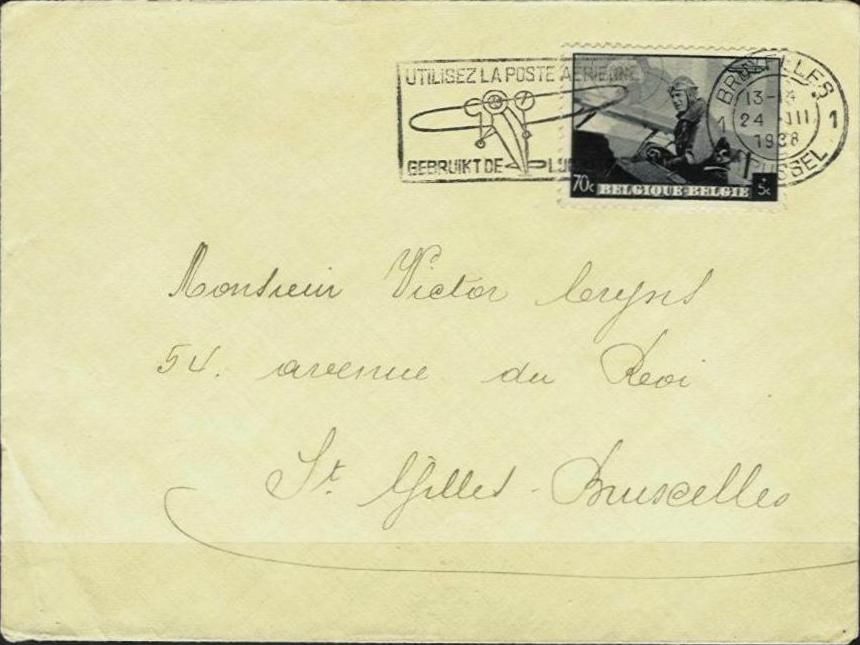 UTILISEZ LA POSTE AERIENNE
GEBRUIKT DE
BRUXELLES
13-
24 III
1938
1 1
BRUSSEL
70c BELGIQUE-BELGIE + 5c
Monsieur Victor Cuyns
54. avenue du Roi
St. Gilles - Bruxelles